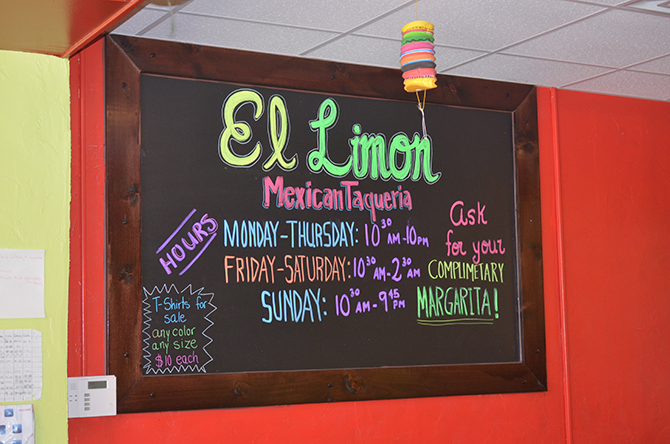 El Limon
Mexican Taqueria
HOURS
MONDAY-THURSDAY: 10 30 AM-10PM
FRIDAY-SATURDAY: 10 30 AM-2 30 AM
SUNDAY: 10 30 AM-9 45 PM
Ask
for your
COMPLIMETARY
MARGARITA!
T-Shirts for
sale
any color
any size
$10 each